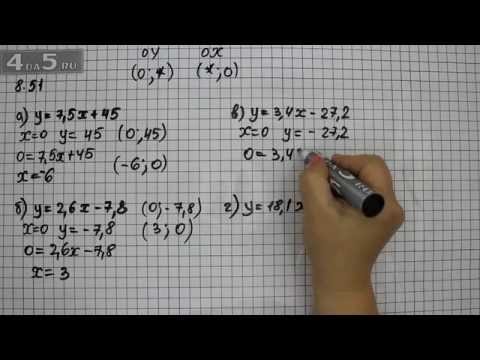 4 ДА 5 .RU
ОУ ОХ
(0;*) (*;0)
8.51
а) y=7,5x+45
x=0 y=45 (0;45)
0=7,5x+45 (-6;0)
x=-6
б) y=2,6x-7,8 (0;-7,8)
x=0 y=-7,8 (3;0)
0=2,6x-7,8
x=3
в) y=3,4x-27,2
x=0 y=-27,2
0=3,4
г) y=18,1